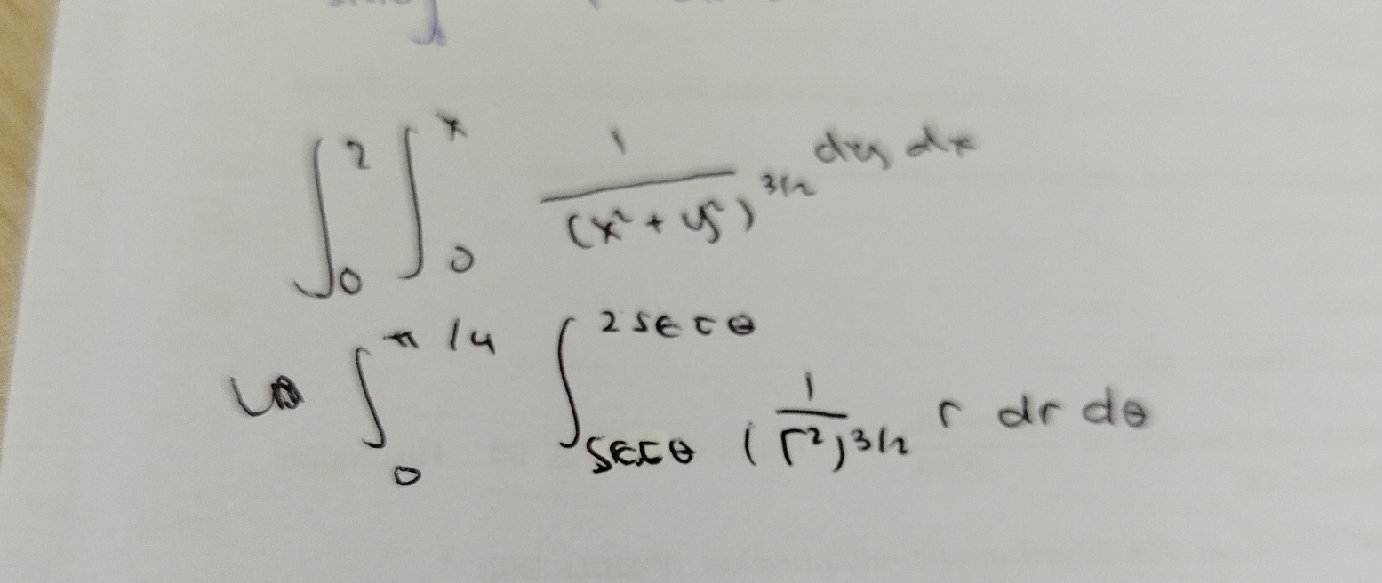 ∫₀² ∫₀ˣ 1/(x² + y²)^{3/2} dy dx
∫₀^{π/4} ∫_{secθ}^{2 secθ} (1/r²)^{3/2} r dr dθ